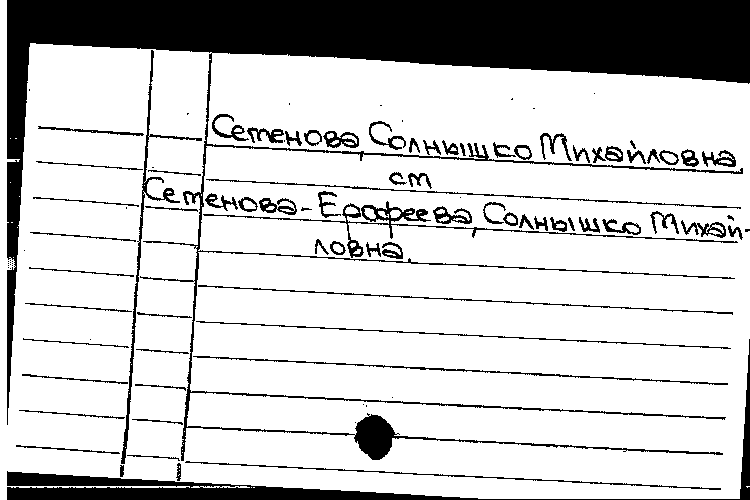 Семенова, Солнышко Михайловна,
см
Семенова-Ерофеева, Солнышко Михай-
ловна.